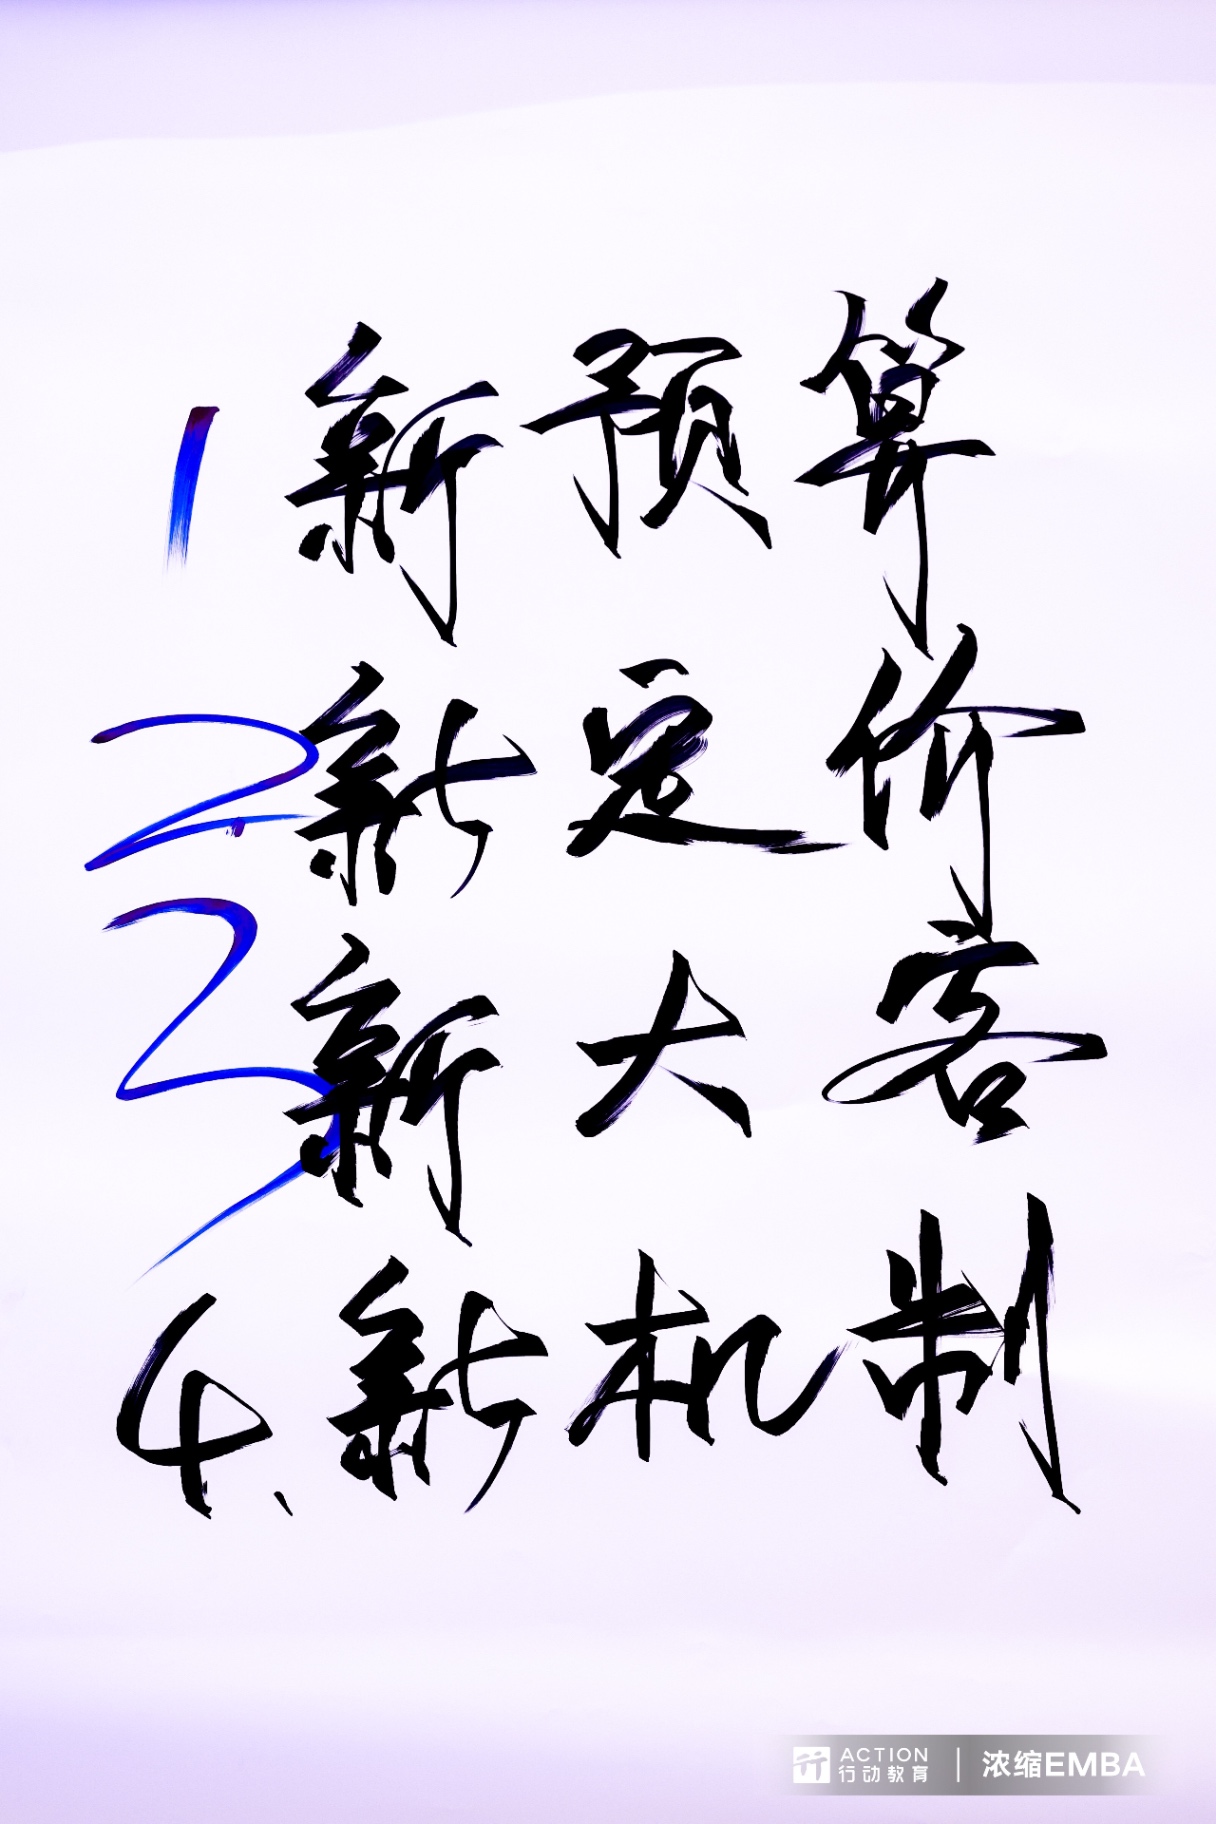 1 新预算
2. 新定价
3 新大客
4、新机制
ACTION
行动教育
浓缩EMBA